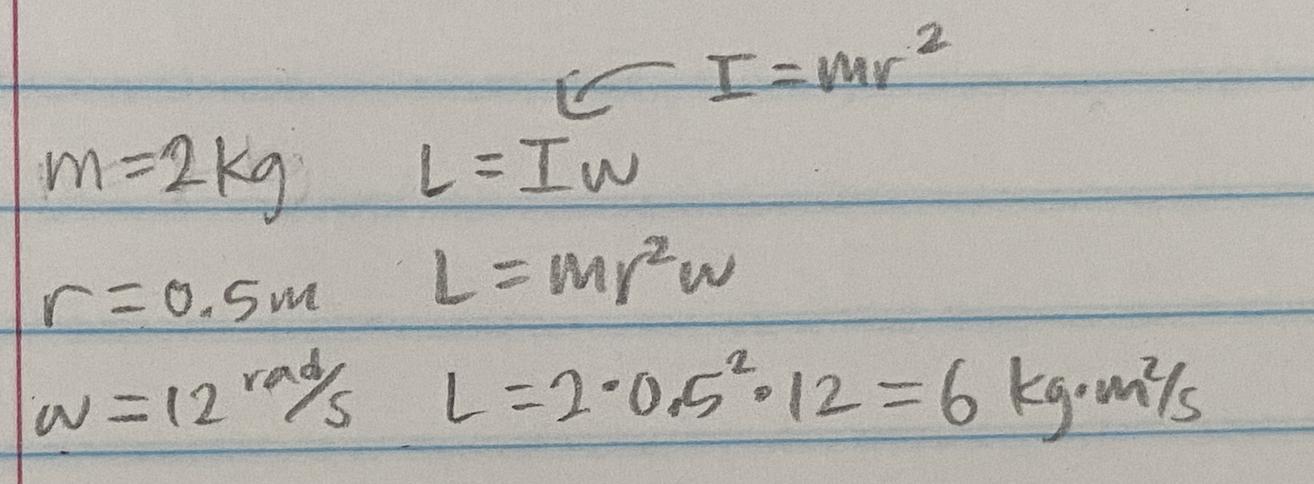 I = mr²
m = 2 kg L = Iw
r = 0.5 m L = mr²w
w = 12 rad/s L = 2 · 0.5² · 12 = 6 kg·m²/s